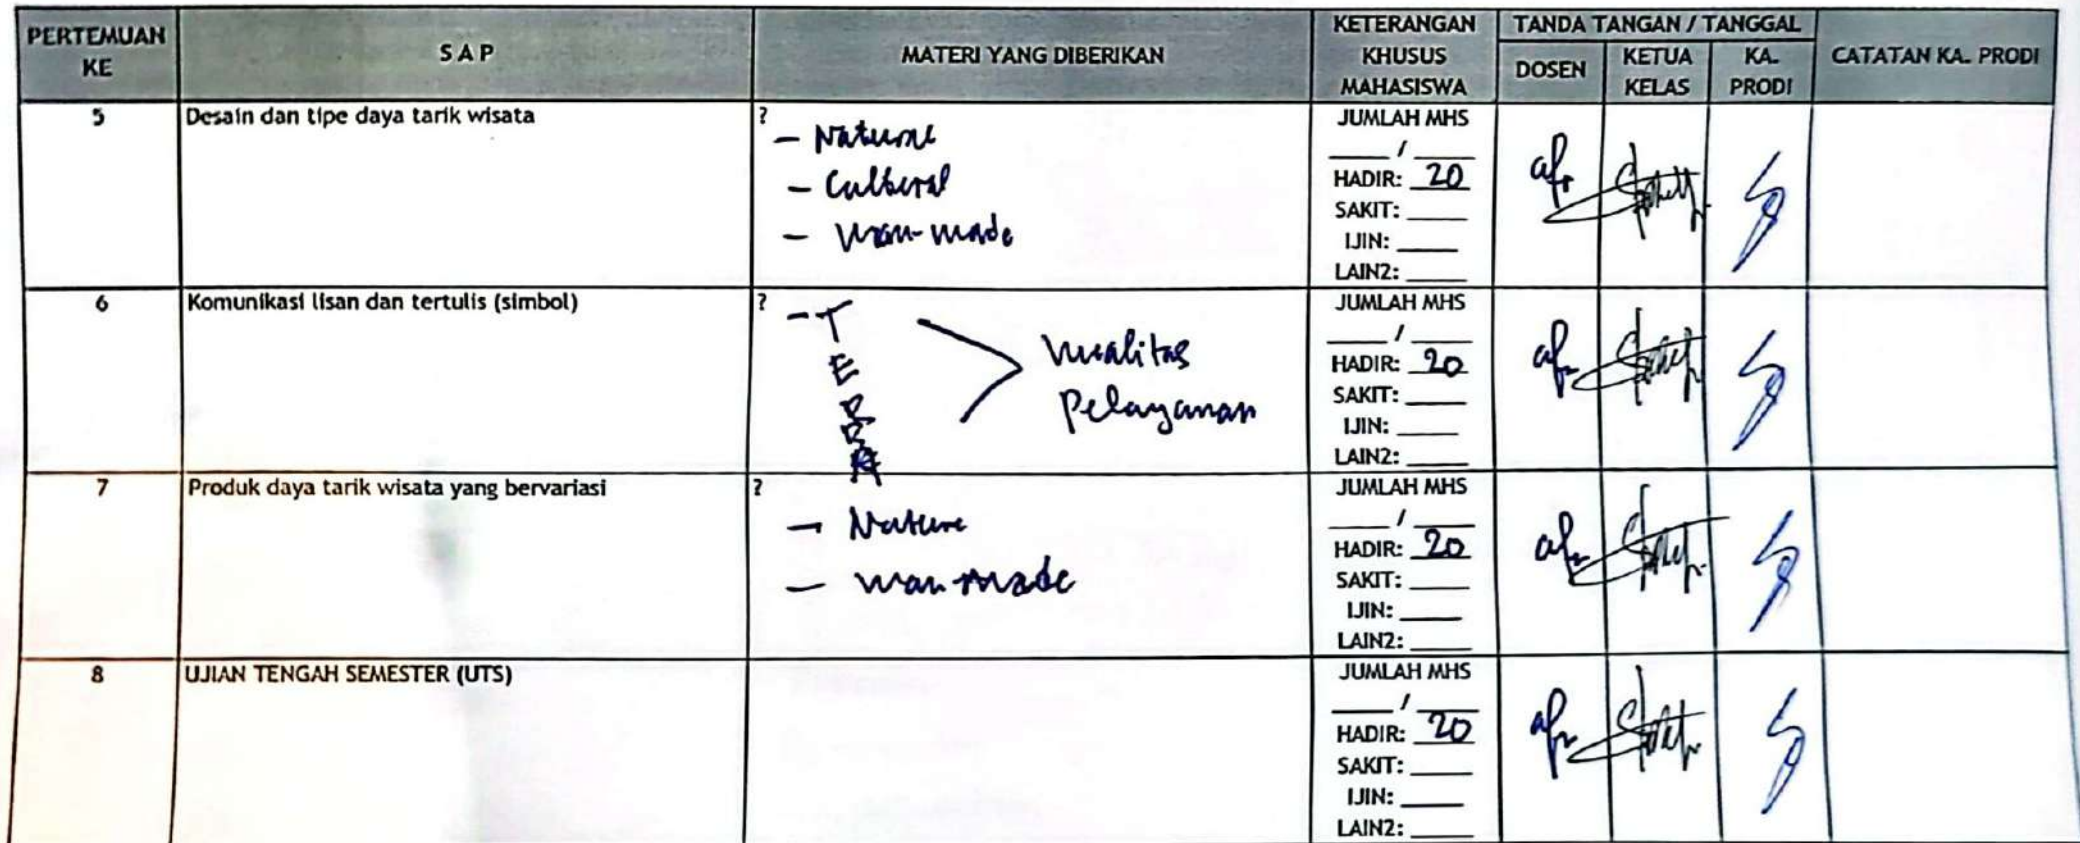 PERTEMUAN KE
S A P
MATERI YANG DIBERIKAN
KETERANGAN KHUSUS MAHASISWA
TANDA TANGAN / TANGGAL
DOSEN
KETUA KELAS
KA. PRODI
CATATAN KA. PRODI
5
Desain dan tipe daya tarik wisata
?
- Nature
- Cultural
- man-made
JUMLAH MHS
____ / ____
HADIR: 20
SAKIT: ____
IJIN: ____
LAIN2: ____
6
Komunikasi lisan dan tertulis (simbol)
?
- T
E
R
R
A
Kualitas
Pelayanan
JUMLAH MHS
____ / ____
HADIR: 20
SAKIT: ____
IJIN: ____
LAIN2: ____
7
Produk daya tarik wisata yang bervariasi
?
- Nature
- man-made
JUMLAH MHS
____ / ____
HADIR: 20
SAKIT: ____
IJIN: ____
LAIN2: ____
8
UJIAN TENGAH SEMESTER (UTS)
JUMLAH MHS
____ / ____
HADIR: 20
SAKIT: ____
IJIN: ____
LAIN2: ____